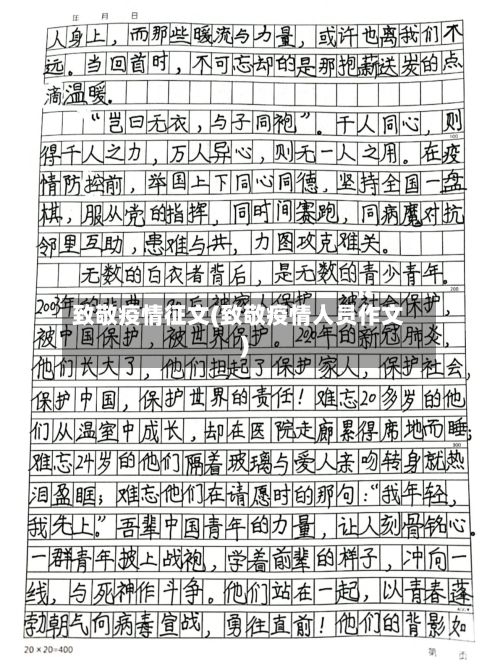 年 月 日
人身上，而那些暖流与力量，或许也离我们不
远。当回首时，不可忘却的是那抱薪送炭的点
滴温暖.
“岂曰无衣，与子同袍”。千人同心，则
100
得千人之力，万人异心，则无一人之用。在疫
情防控前，举国上下同心同德，坚持全国一盘
棋，服从党的指挥，同时间赛跑，同病魔对抗
邻里互助，患难与共，力图攻克难关。
无数的白衣者背后，是无数的青少青年。
200
2003年的非典，90后被家人保护，被社会保护，
致敬疫情征文(致敬疫情人员作文
)
被中国保护，被世界保护。2020年的新冠肺炎，
他们长大了，他们担起了保护家人，保护社会，
保护中国，保护世界的责任！难忘20多岁的他
们从温室中成长，却在医院走廊累得席地而睡；
300
难忘24岁的他们隔着玻璃与爱人亲吻转身就热
泪盈眶；难忘他们在请愿时的那句：“我年轻，
我先上。”吾辈中国青年的力量，让人刻骨铭心。
一群青年披上战袍，学着前辈的样子，冲向一
线，与死神作斗争。他们站在一起，以青春蓬
勃朝气向病毒宣战，勇往直前！他们的背影如
20×20=400
第 页